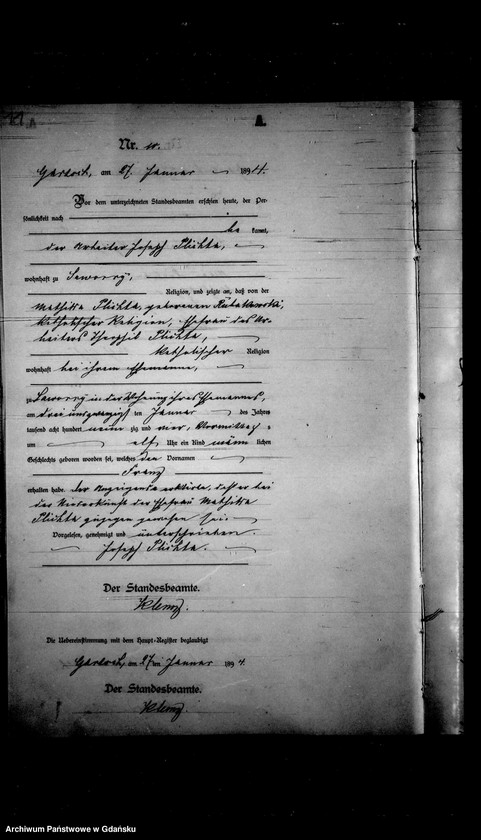 A.
Nr. 10.
am 27. Januar 1894.
Vor dem unterzeichneten Standesbeamten erschien heute, der Per-
sönlichkeit nach
be kannt,
der Arbeiter Joseph Plichta,
wohnhaft zu Saworry,
Religion, und zeigte an, daß von der
Mathilde Plichta, geborenen
katholischer Religion, Ehefrau des Ar-
beiters Theophil Plichta,
katholischer Religion
wohnhaft bei ihrem Ehemanne,
zu Saworry in der Wohnung ihres Ehemannes,
am drei und zwanzigsten Januar des Jahres
tausend acht hundert neun zig und vier, Vormittags
um elf Uhr ein Kind männ lichen
Geschlechts geboren worden sei, welches den Vornamen
Franz
erhalten habe. Der Anzeigende erklärte, daß er bei
der Niederkunft der Ehefrau Mathilde
Plichta zugegen gewesen sei.
Vorgelesen, genehmigt und unterschrieben.
Joseph Plichta.
Der Standesbeamte.
Die Uebereinstimmung mit dem Haupt-Register beglaubigt
am 27ten Januar 1894.
Der Standesbeamte.
Archiwum Państwowe w Gdańsku